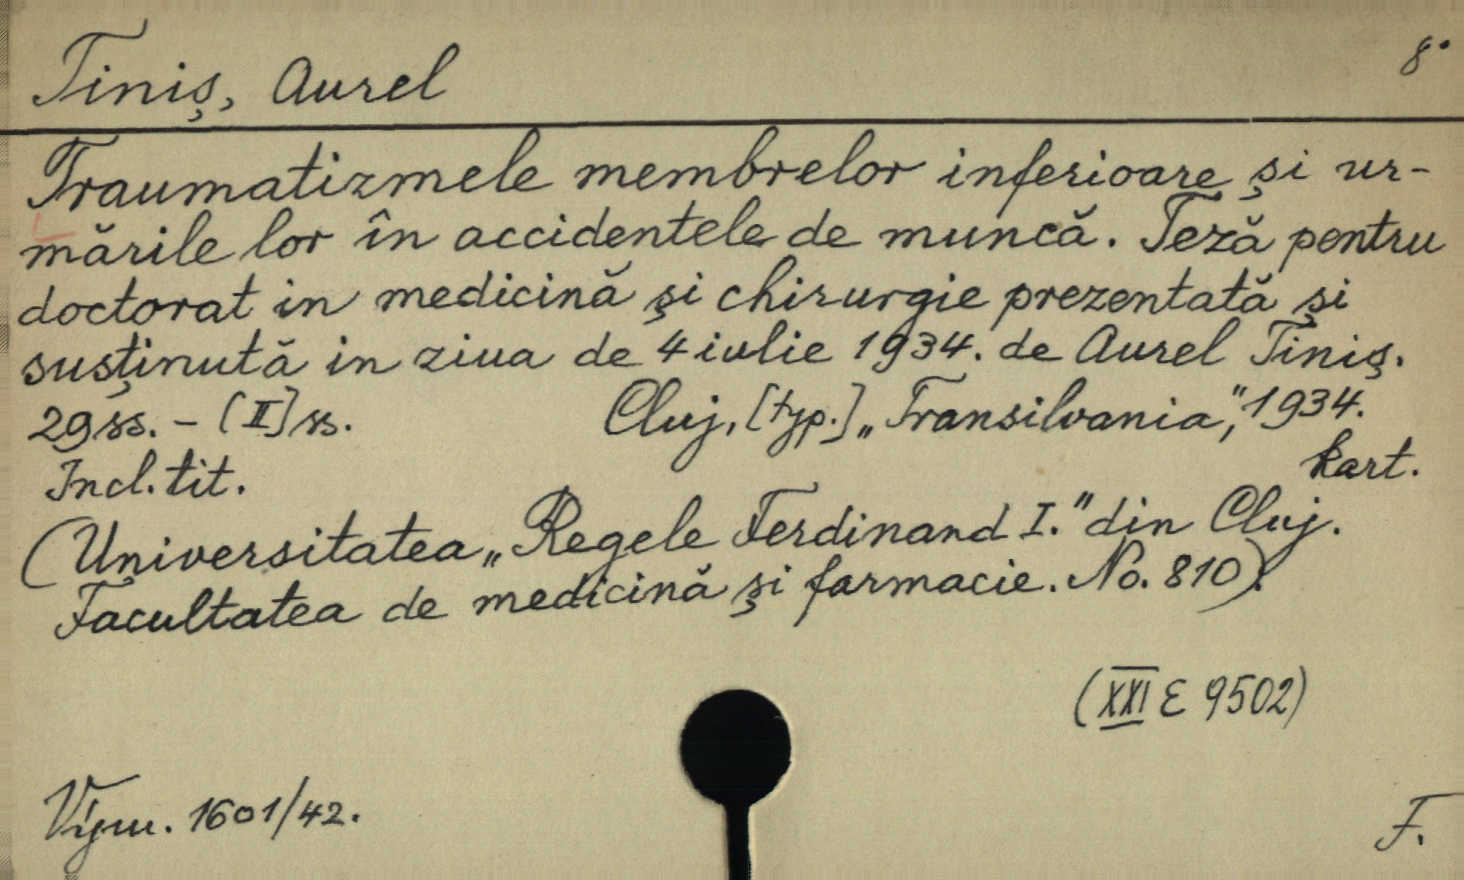 Tiniș, Aurel 8°
Traumatizmele membrelor inferioare și ur-
mările lor în accidentele de muncă. Teză pentru
doctorat in medicină și chirurgie prezentată și
susținută in ziua de 4 iulie 1934. de Aurel Tiniș.
29 ss. - [II] ss. Cluj, [typ.] „Transilvania", 1934.
kart.
Incl. tit.
(Universitatea „Regele Ferdinand I." din Cluj.
Facultatea de medicină și farmacie. No. 810).
(XXI E 9502)
Vým. 1601/42. F.